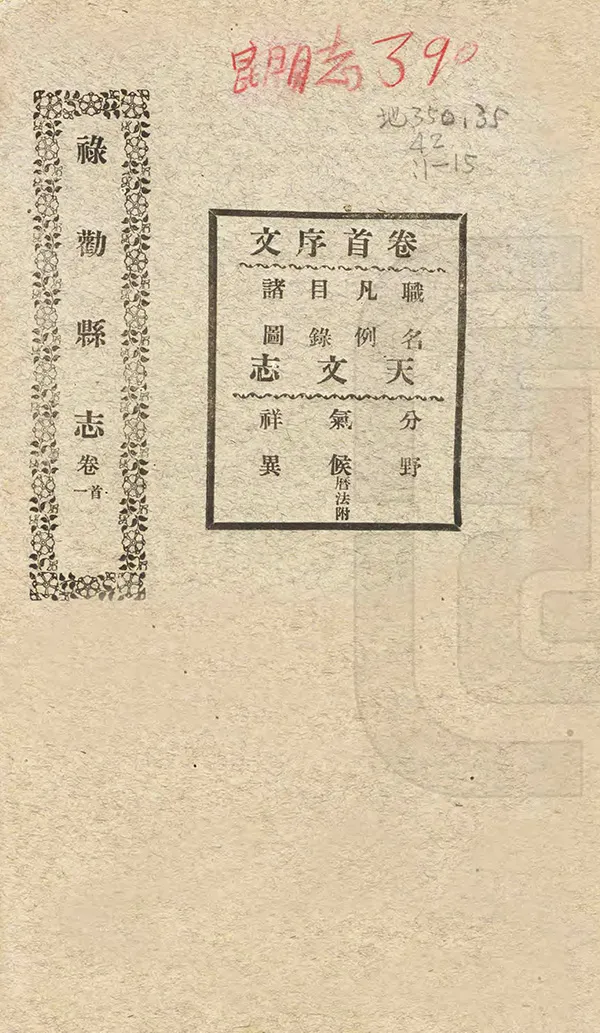 昆明志390
地350.35
42
:1-15
卷首序文
職名
凡例
目錄
諸圖
天文志
分野
氣候曆法附
祥異
祿勸縣志卷首一